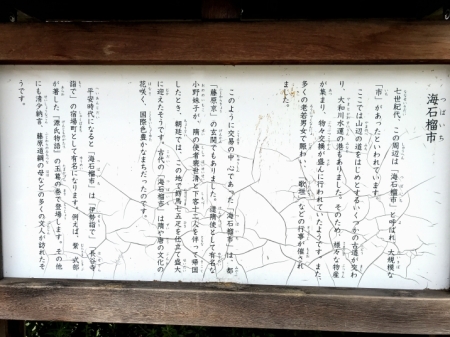 海石榴市
つばいち
七世紀、この周辺は「海石榴市」と呼ばれ、大規模な
「市」があったといわれています。
ここでは山辺の道をはじめとするいくつかの古道が交わ
り、大和川水運の港もありました。そのため、様々な物産
が集まり、物々交換が盛んに行われていたようです。また、
多くの老若男女で賑わい、「歌垣」などの行事が催され
ました。
このように交易の中心であった「海石榴市」は、都
「藤原京」の玄関でもありました。遣隋使として有名な
小野妹子が、隋の使者裴世清と下客十二人を伴って帰国
したとき、朝廷では、この地で飾馬七五疋を仕立て盛大
に迎えたそうです。古代の「海石榴市」は隋や唐の文化の
花咲く、国際色豊かなまちだったのです。
平安時代になると「海石榴市」は「伊勢詣で」「長谷寺
詣で」の宿場町として有名になります。例えば、紫式部
が著した『源氏物語』の玉鬘の巻で登場します。その他
にも清少納言、藤原道綱の母などの多くの文人が訪れたそ
うです。